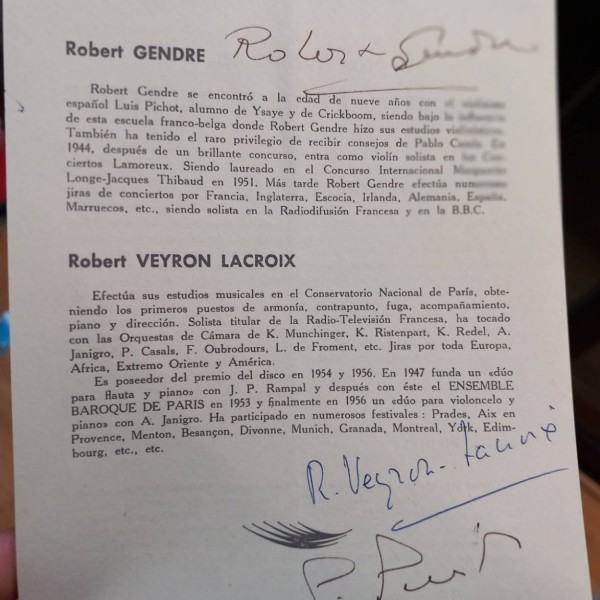 Robert GENDRE Robert Gendre
Robert Gendre se encontró a la edad de nueve años con
español Luis Pichot, alumno de Ysaye y de Crickboom, siendo bajo
de esta escuela franco-belga donde Robert Gendre hizo sus estudios
También ha tenido el raro privilegio de recibir consejos de Pablo
1944, después de un brillante concurso, entra como violín solista en
ciertos Lamoreux. Siendo laureado en el Concurso Internacional
Longe-Jacques Thibaud en 1951. Más tarde Robert Gendre efectúa
jiras de conciertos por Francia, Inglaterra, Escocia, Irlanda, Alemania, España,
Marruecos, etc., siendo solista en la Radiodifusión Francesa y en la B.B.C.
Robert VEYRON LACROIX
Efectúa sus estudios musicales en el Conservatorio Nacional de París, obte-
niendo los primeros puestos de armonía, contrapunto, fuga, acompañamiento,
piano y dirección. Solista titular de la Radio-Televisión Francesa, ha tocado
con las Orquestas de Cámara de K. Munchinger, K. Ristenpart, K. Redel, A.
Janigro, P. Casals, F. Oubrodours, L. de Froment, etc. Jiras por toda Europa,
Africa, Extremo Oriente y América.
Es poseedor del premio del disco en 1954 y 1956. En 1947 funda un «dúo
para flauta y piano» con J. P. Rampal y después con éste el ENSEMBLE
BAROQUE DE PARIS en 1953 y finalmente en 1956 un «dúo para violoncelo y
piano» con A. Janigro. Ha participado en numerosos festivales : Prades, Aix en
Provence, Menton, Besançon, Divonne, Munich, Granada, Montreal, York, Edim-
bourg, etc., etc.
R. Veyron-Lacroix